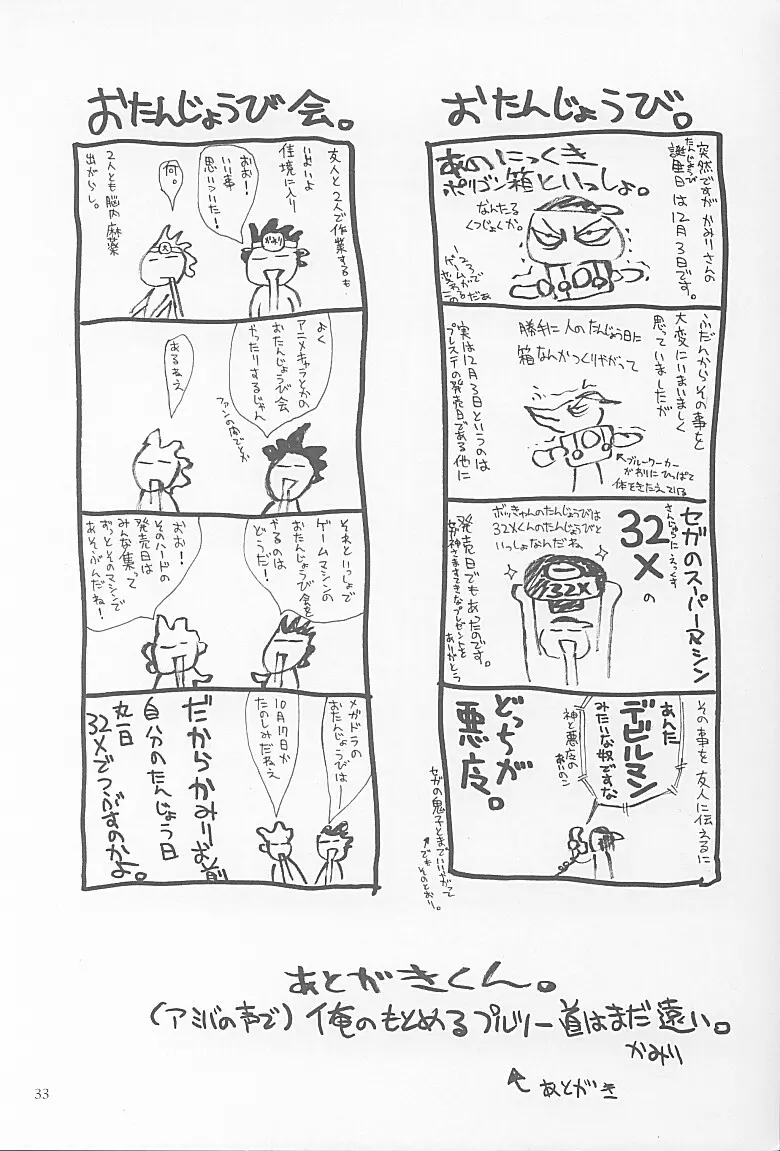 おたんじょうび。
突然ですが かみりさんの
誕生日は12月3日です。
たんじょうび
あのにっくき
ポリゴン箱といっしょ。
なんたる
くつじょくか。
ふだんからその事を
大変にいまいましく
思っていましたが
勝手に人のたんじょう日に
箱なんかつくりやがって
↖ブルーワーカー
がわりにひっぱって
体をきたえている
実は12月3日というのは
プレステの発売日である他に
セガのスーパーマシン
32X の
さんじゅうにえっくす
ボッきゃんのたんじょうびは
32Xくんのたんじょうびと
いっしょなんだね
32X
発売日でもあったのです。
女神さますてきなプレゼントを
ありがとう
その事を友人に伝えるに
あんた
デビルマン
みたいな奴ですな
神と悪魔の
あいのこ
どっちが
悪魔。
セガの鬼子とまでいいやがって
↑でもそのとおり。
おたんじょうび会。
友人と2人で作業するも
いよいよ
佳境に入り
おお!
いい事
思いついた!
かみり
何。
2人とも脳内麻薬
出がらし。
よく
アニメキャラとかの
おたんじょうび会
やったりするじゃん
ファンの間でとか
あるねえ
それといっしょで
ゲームマシンの
おたんじょうび会を
やるのは
どうだ!
おお!
そのハードの
発売日は
みんな集って
ずっとそのマシンで
あそぶんだね!
メガドラの
おたんじょうびは
10月17日か
たのしみだねえ
だからかみりーお前
自分のたんじょう日
丸一日
32Xでつぶすのかよ。
あとがきくん。
(アミバの声で)俺のもとめるプルツー道はまだ遠い。
かみり
↖ あとがき
33